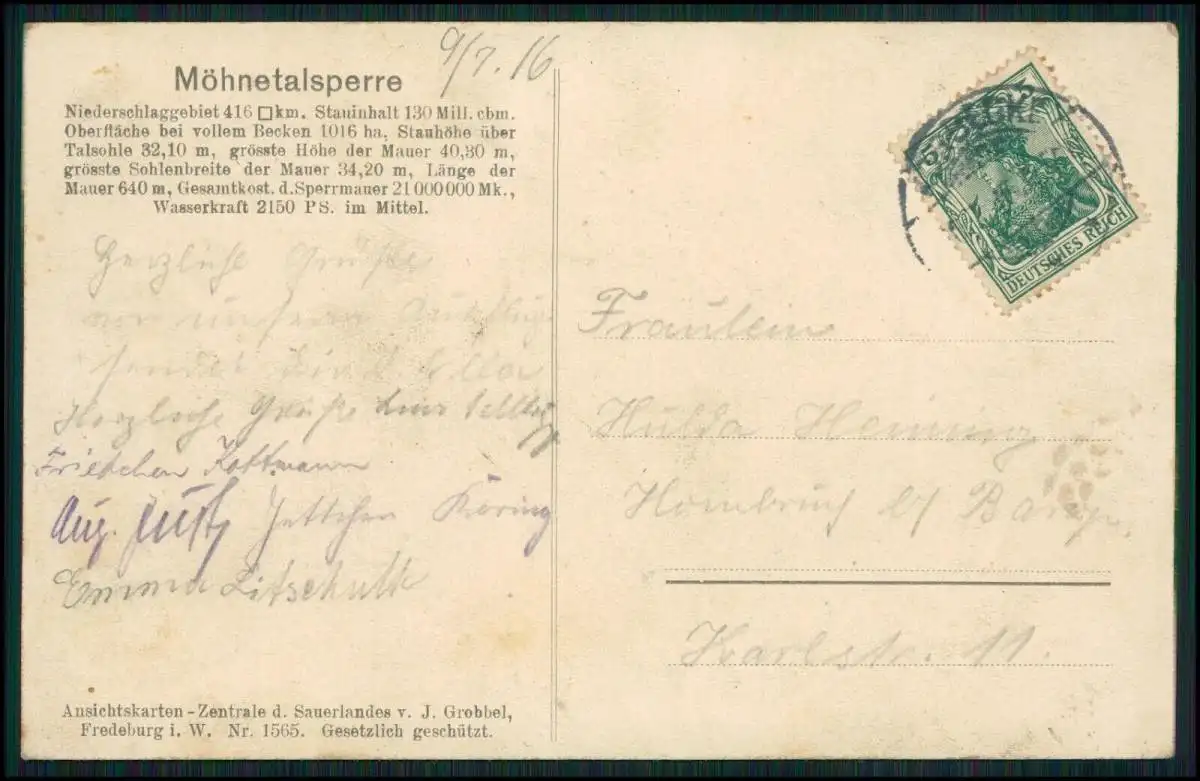 9/7.16
Möhnetalsperre
Niederschlaggebiet 416 □km. Stauinhalt 130 Mill. cbm.
Oberfläche bei vollem Becken 1016 ha. Stauhöhe über
Talsohle 32,10 m, grösste Höhe der Mauer 40,30 m,
grösste Sohlenbreite der Mauer 34,20 m, Länge der
Mauer 640 m, Gesamtkost. d. Sperrmauer 21 000 000 Mk.,
Wasserkraft 2150 PS. im Mittel.
Herzliche Grüße
unserm
sendet
Herzliche Grüße
Friedchen Kottmann
Aug. Just, Jettchen Köring
Emma Litschulte
Ansichtskarten-Zentrale d. Sauerlandes v. J. Grobbel,
Fredeburg i. W. Nr. 1565. Gesetzlich geschützt.
DEUTSCHES REICH
Fräulein
Hulda Heining
Hombruch b/ Barop.
Karlstr. 11.